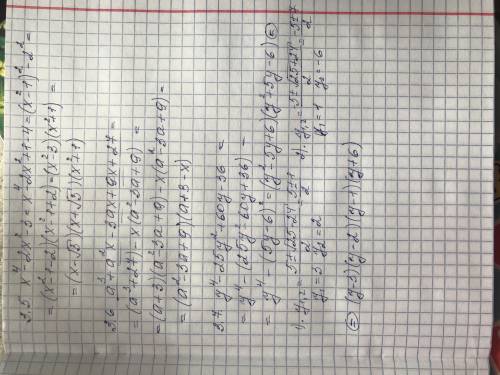 3.5 x⁴-2x²-3=x⁴-2x²+1-4=(x²-1)²-2²=
=(x²-1-2)(x²-1+2)=(x²-3)(x²+1)=
=(x-√3)(x+√3)(x²+1)
3.6 a³+a²x-3ax+9x+27=
=(a³+27)-x(a²-3a+9)=
=(a+3)(a²-3a+9)-x(a²-3a+9)=
=(a²-3a+9)(a+3-x)
3.7. y⁴-25y²+60y-36=
=y⁴-(25y²-60y+36)=
=y⁴-(5y-6)²=(y²-5y+6)(y²+5y-6)⊜
1). y₁,₂=5±√25-24/2=5±1/2 2). y₁,₂=-5±√25+24/2=-5±7/2
y₁=3 y₂=2 y₁=1 y₂=-6
⊜ (y-3)(y-2)(y-1)(y+6)